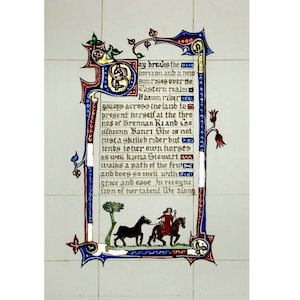 Day breaks the
horizon and a new
sun rises over the
Eastern realm
A dawn rider
gallops across the land to
present herself at the thro
nes of Brennan Ri and Cao
ilfhionn Banri She is not
just a skilled rider but
tends to her own horses
as well Riena Stewart
walks a path of the few
and does so well with
grace and ease In recogniti
on of her talent We along